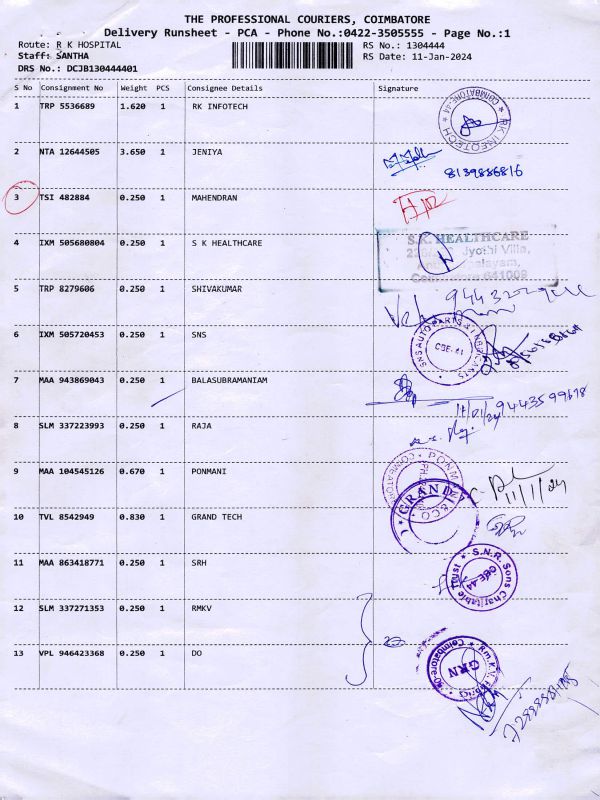 THE PROFESSIONAL COURIERS, COIMBATORE
Delivery Runsheet - PCA - Phone No.:0422-3505555 - Page No.:1
Route: R K HOSPITAL RS No.: 1304444
Staff: SANTHA RS Date: 11-Jan-2024
DRS No.: DCJB130444401
S No Consignment No Weight PCS Consignee Details Signature
1 TRP 5536689 1.620 1 RK INFOTECH
RK INFOTECH COIMBATORE-44
2 NTA 12644505 3.650 1 JENIYA
8139886816
3 TSI 482884 0.250 1 MAHENDRAN
4 IXM 505680804 0.250 1 S K HEALTHCARE
S.K. HEALTHCARE
Jyothi Villa,
5 TRP 8279606 0.250 1 SHIVAKUMAR
6 IXM 505720453 0.250 1 SNS
SNS AUTO PARTS & CBE-41
7 MAA 943869043 0.250 1 BALASUBRAMANIAM
11/01/24 9443599698
8 SLM 337223993 0.250 1 RAJA
9 MAA 104545126 0.670 1 PONMANI
PONMANI COIMBATORE
11/1/24
10 TVL 8542949 0.830 1 GRAND TECH
GRAND & CO
11 MAA 863418771 0.250 1 SRH
S.N.R. Sons Charitable Trust CBE-44
12 SLM 337271353 0.250 1 RMKV
13 VPL 946423368 0.250 1 DO
Rm.K.V. Fabrics Coimbatore GRN